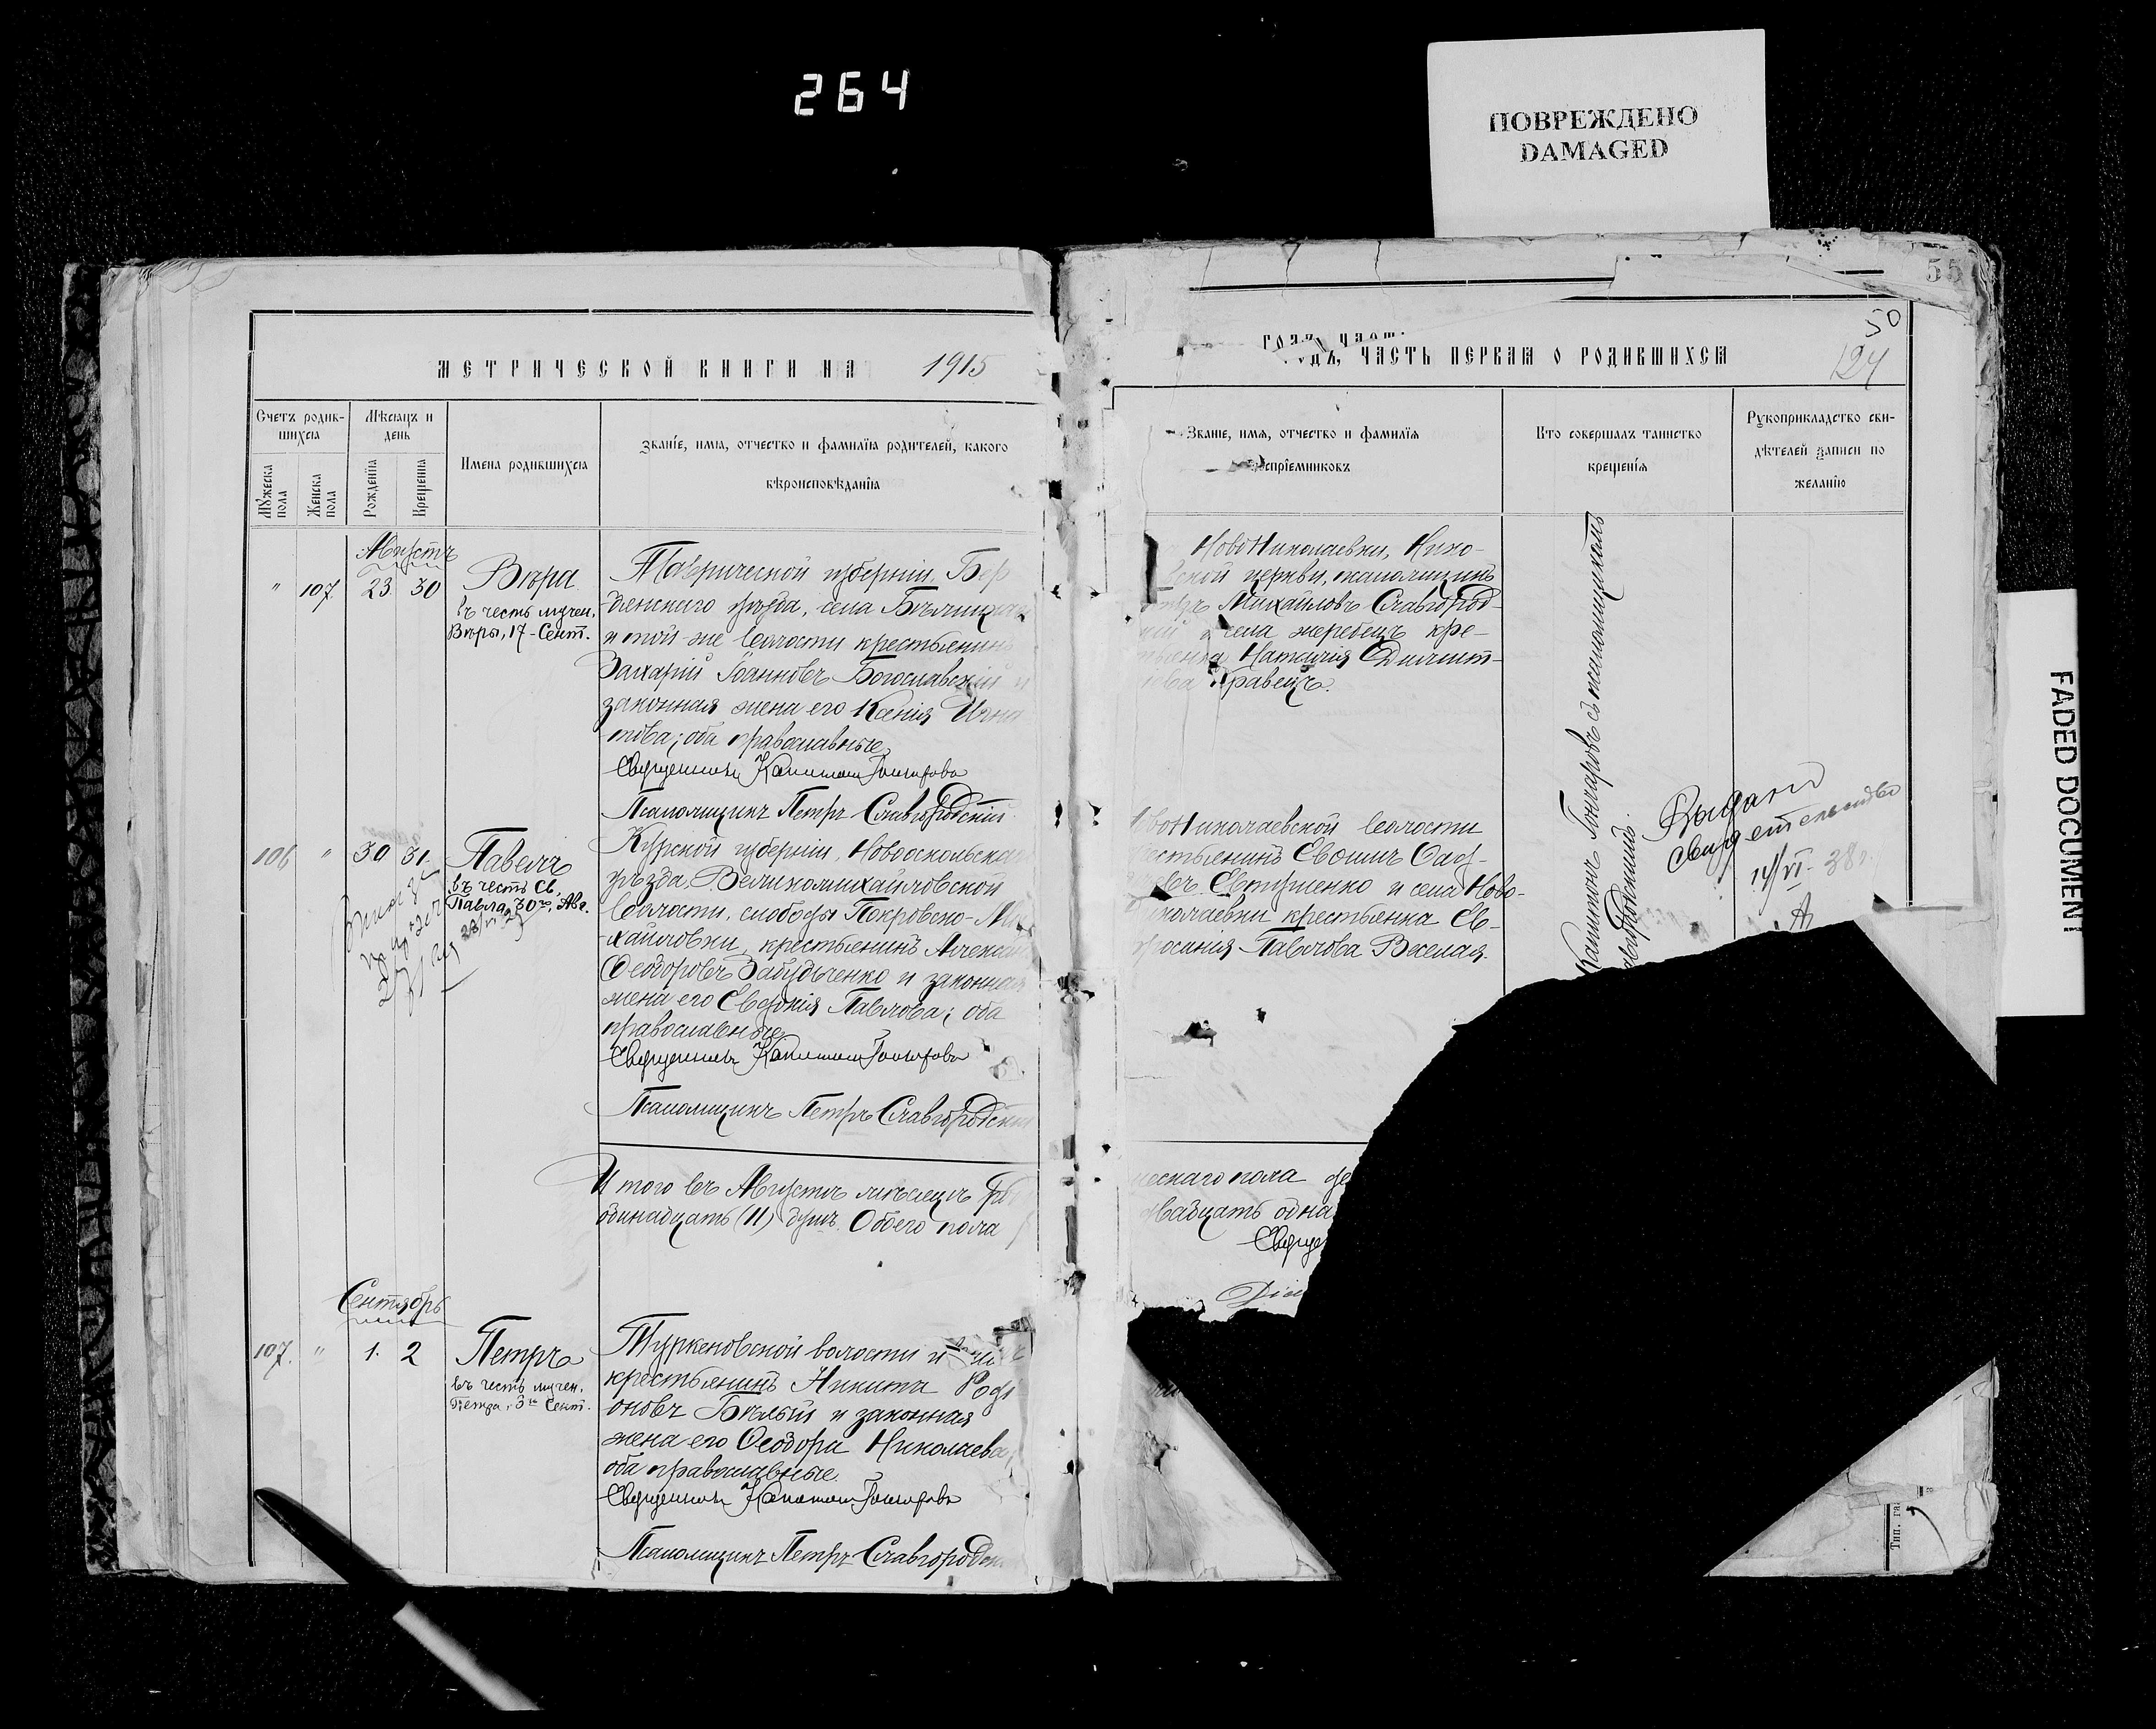 264
ПОВРЕЖДЕНО
DAMAGED
FADED DOCUMEN
55
50
124
МЕТРИЧЕСКОЙ КНИГИ НА 1915
ЧАСТЬ ПЕРВАЯ О РОДИВШИХСЯ
Счетъ родив-
шихся
Мѣсяцъ и
день
Мужеска
пола
Женска
пола
Рожденія
Крещенія
Имена родившихся
Званіе, имя, отчество и фамилія родителей, какого
вѣроисповѣданія
Званіе, имя, отчество и фамилія
Кто совершалъ таинство
крещенія
Рукоприкладство сви-
дѣтелей записи по
желанію
Августъ
" 107 23 30
Вѣра
въ честь мучен.
Вѣры, 17-Сент.
Таврической губерніи, Бер
дянскаго уѣзда, села
и той-же волости крестьянинъ
Захарій Іоанновъ Богославскій и
законная жена его Ксенія Игна
това; оба православные
Священникъ Капитонъ Гончаровъ
Псаломщикъ Петръ Славгородскій
НовоНиколаевки, Нико-
церкви, псаломщикъ
Михайловъ Славгород-
села жеребецъ кре-
Наталія Димит-
Кравецъ.
Капитонъ Гончаровъ съ псаломщикомъ
106 " 30 31
Павелъ
въ честь Св.
Павла, 30го Авг.
Курской губерніи, Новооскольскаго
уѣзда, Великомихайловской
волости, слободы Покровско-Ми
хайловки, крестьянинъ Алексѣй
Ѳеодоровъ Забудченко и законная
жена его Евдокія Павлова; оба
православные
Священникъ Капитонъ Гончаровъ
Псаломщикъ Петръ Славгородскій
НовоНиколаевской волости
Евтушенко и села Ново-
николаевки крестьянка Ев-
Павлова Веселая.
Выдано
свидетельство
14/VI-38
Итого въ Августѣ мѣсяцѣ
одинадцать (11) душъ. Обоего пола
ческаго пола де
двадцать одна
Сентябрь
107. " 1. 2
Петръ
въ честь мучен.
Петра, 3го Сент.
Туркеновской волости и
крестьянинъ Никита Роді
оновъ Бѣлый и законная
жена его Ѳеодора Николаева,
оба православные.
Священникъ Капитонъ Гончаровъ
Псаломщикъ Петръ Славгородск
Тип.